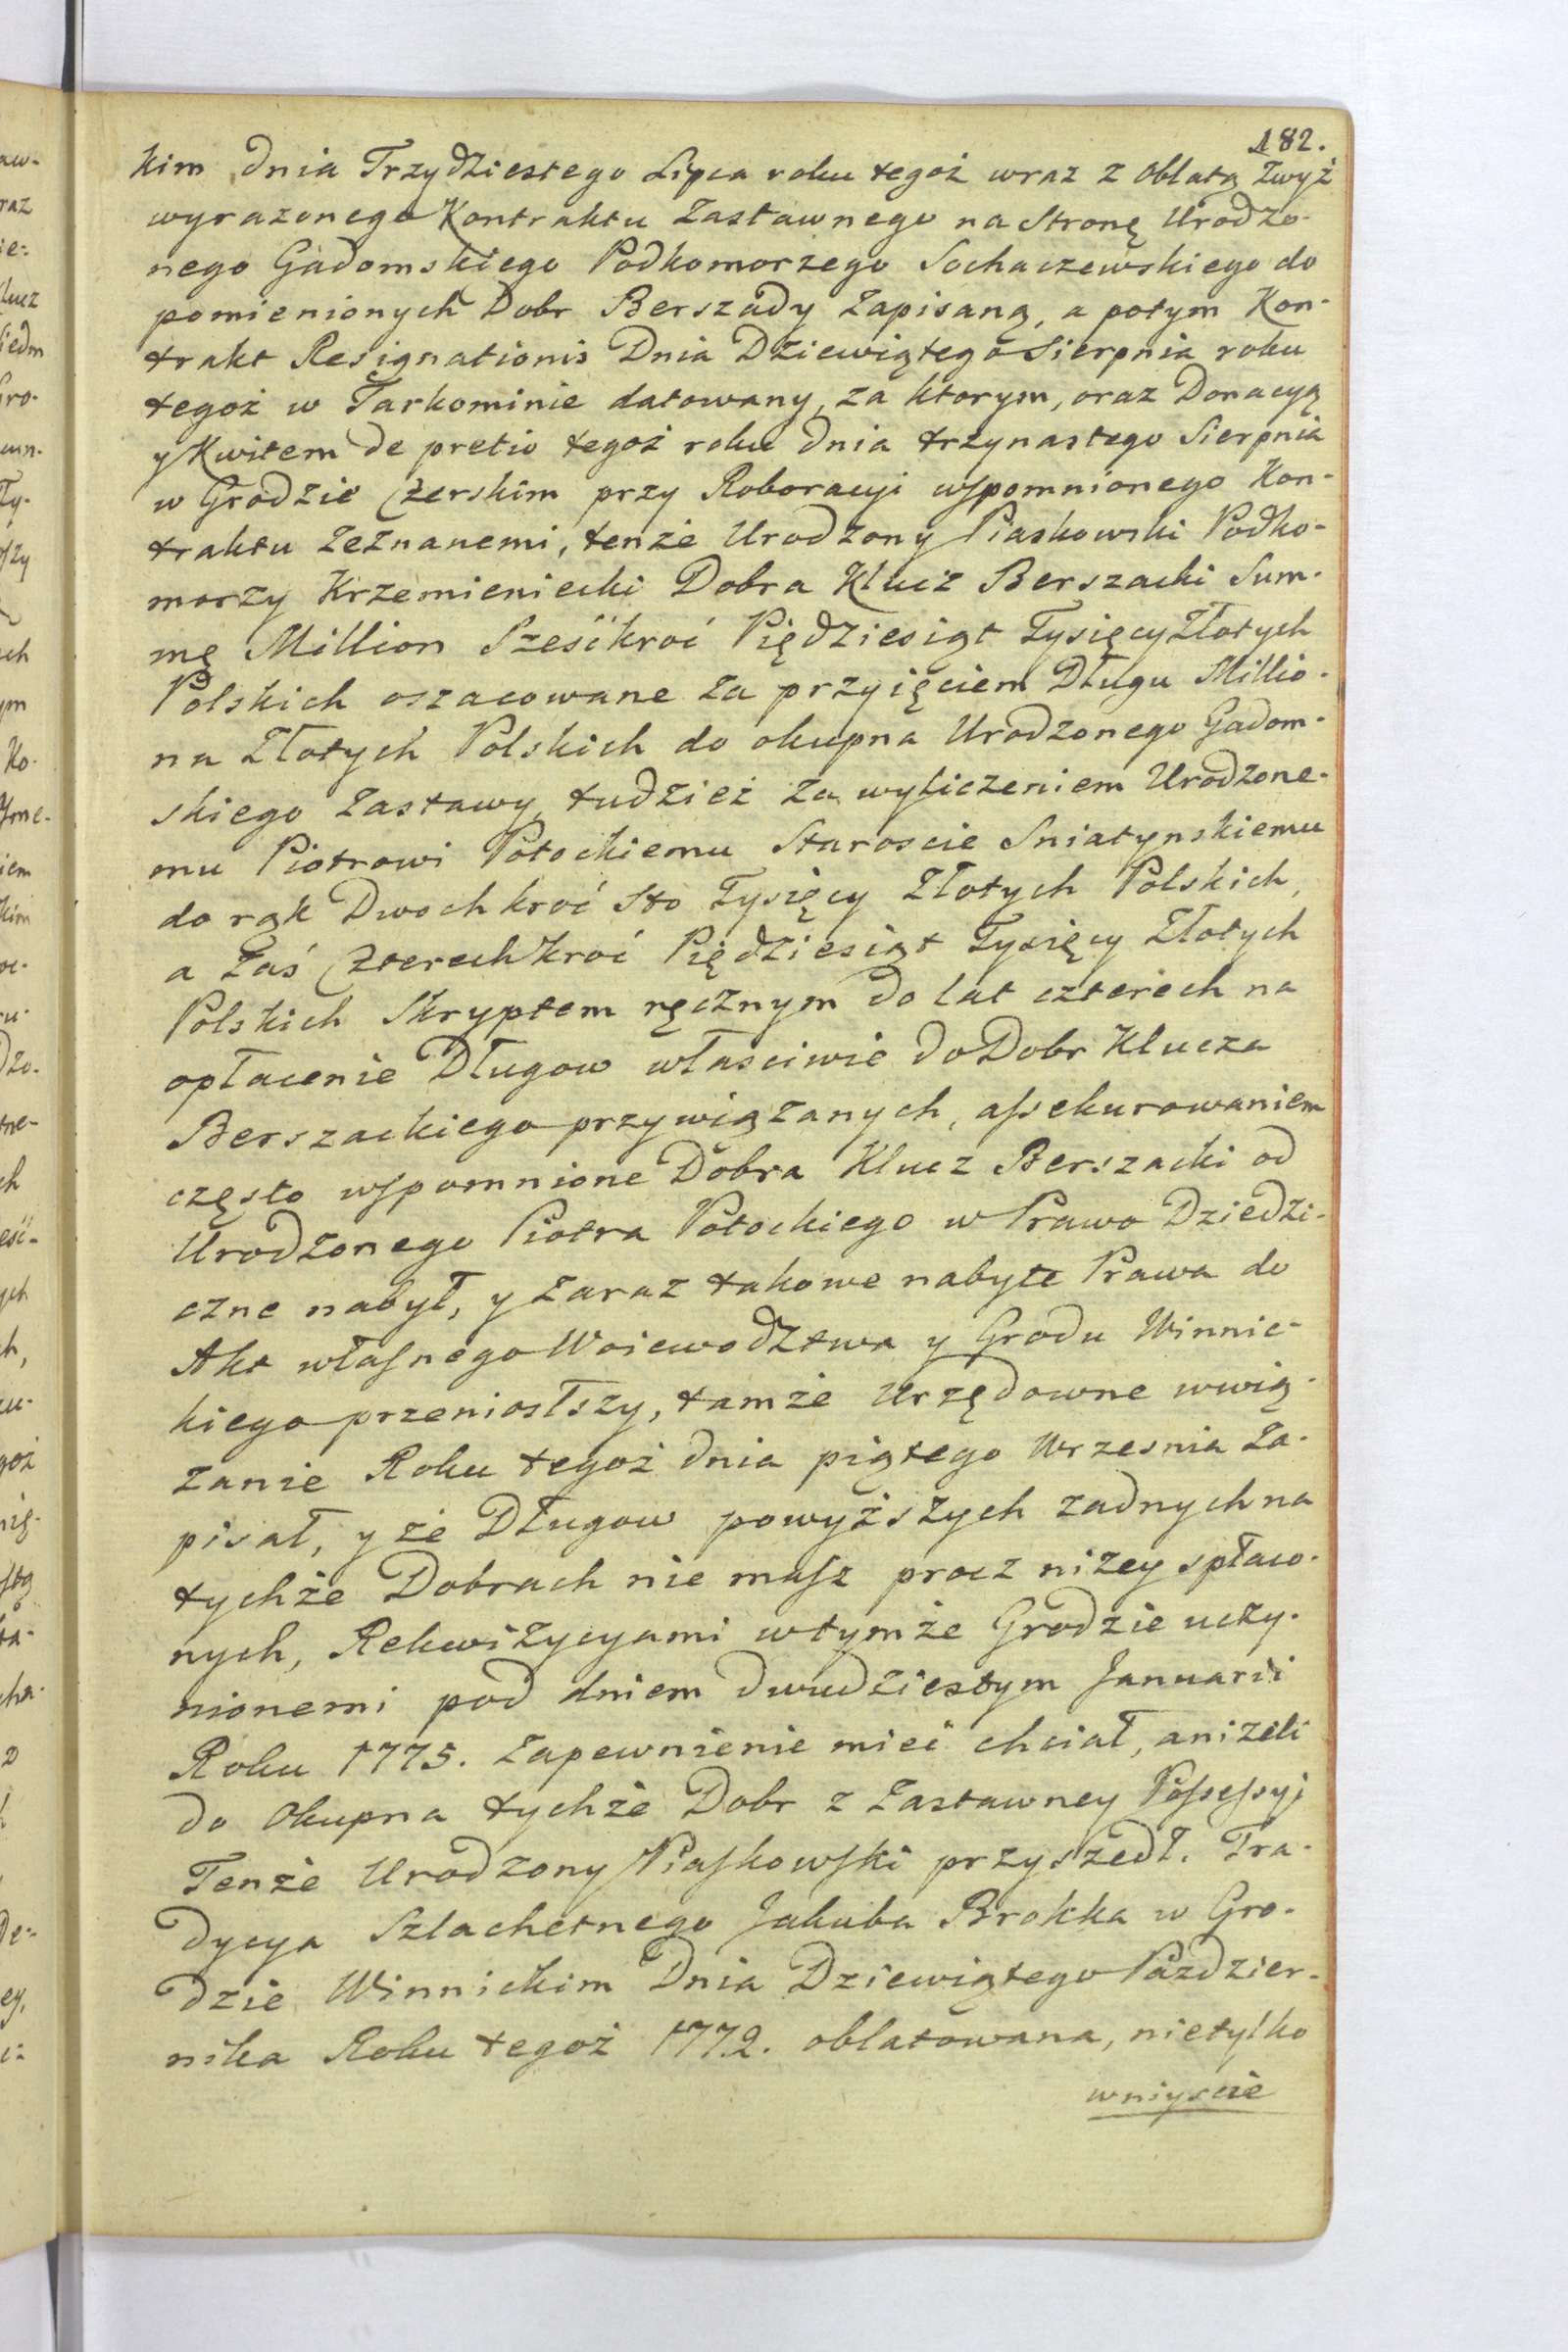 182.
kim dnia Trzydziestego Lipca roku tegoż wraz z Oblatą zwyż
wyrazonego Kontraktu Zastawnego na Stronę Urodzo-
nego Gadomskiego Podkomorzego Sochaczewskiego do
pomienionych Dobr Berszady Zapisaną, a potym Kon-
trakt Resignationis Dnia Dziewiątego Sierpnia roku
tegoż w Tarkominie datowany, za ktorym, oraz Donacyą
y Kwitem de pretio tegoż roku dnia trzynastego Sierpnia
w Grodzie Czerskim przy Roboracyi wspomnionego Kon-
traktu Zeznanemi, tenże Urodzony Piaskowski Podko-
morzy Krzemieniecki Dobra Klucz Berszacki Sum-
mę Million Sześćkroć Piędziesiąt Tysięcy Złotych
Polskich oszacowane za przyięciem Długu Millio-
na Złotych Polskich do okupna Urodzonego Gadom-
skiego Zastawy, tudzież za wyliczeniem Urodzone-
mu Piotrowi Potockiemu Staroscie Sniatynskiemu
do rąk Dwochkroć Sto Tysięcy Złotych Polskich,
a Zaś Czterechkroć Piędziesiąt Tysięcy Złotych
Polskich Skryptem ręcznym do lat czterech na
opłacenie Długow własciwie do Dobr Klucza
Berszackiego przywiązanych, assekurowaniem
często wspomnione Dobra Klucz Berszacki od
Urodzonego Piotra Potockiego w Prawo Dziedzi-
czne nabył, y zaraz takowe nabyte Prawa do
Akt własnego Woiewodztwa y Grodu Winnic-
kiego przeniosłszy, tamże Urzędowne wwią-
zanie Roku tegoż dnia piątego Wrzesnia Za-
pisał, y że Długow powyższych żadnych na
tychże Dobrach nie masz procz niżey spłaco-
nych, Rekwizycyami w tymże Grodzie uczy-
nionemi pod dniem dwudziestym Januarii
Roku 1775. Zapewnienie mieć chciał, aniżeli
do Okupna tychże Dobr z Zastawney Possessyi
Tenże Urodzony Piaskowski przyszedł. Tra-
dycya Szlachetnego Jakuba Brokka w Gro-
dzie Winnickim Dnia Dziewiątego Pazdzier-
nika Roku tegoż 1772. oblatowana, nietylko
wniyscie